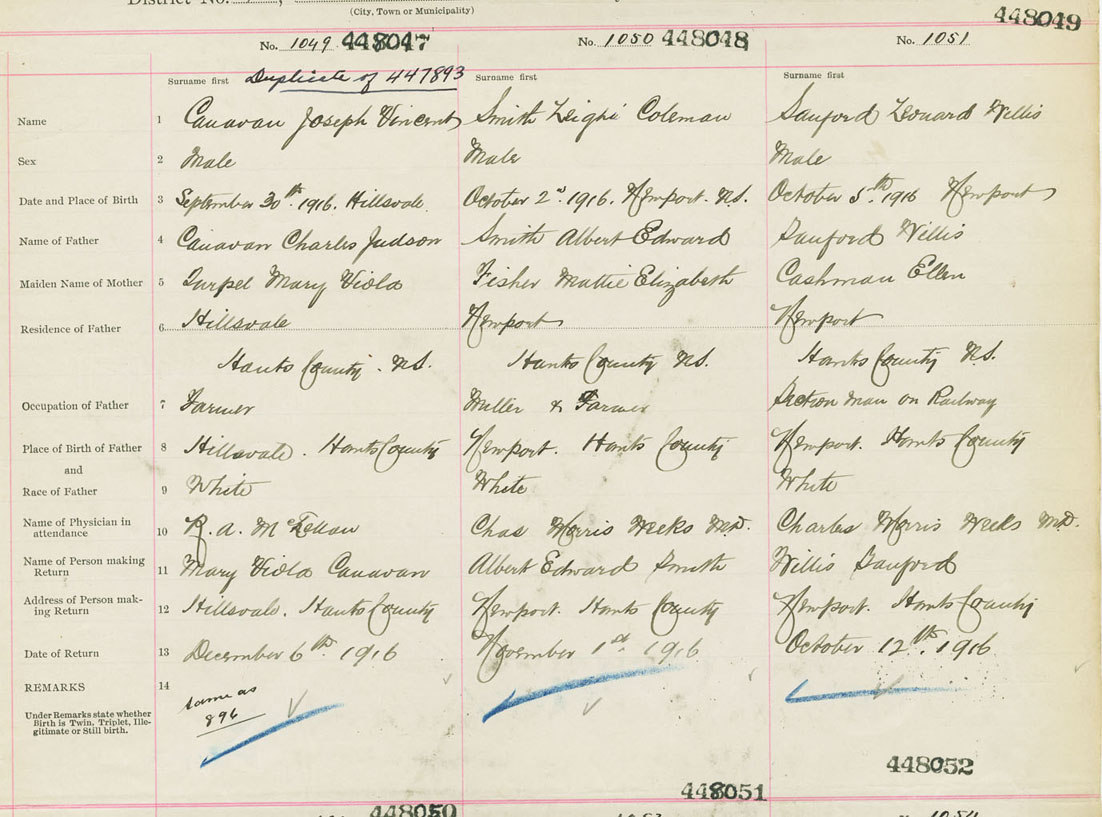 District No.
(City, Town or Municipality)
448049
No. 1049 448047 No. 1050 448048 No. 1051
Surname first Duplicate of 447893 Surname first Surname first
Name 1 Canavan Joseph Vincent Smith Leighi Coleman Sanford Leonard Willis
Sex 2 Male Male Male
Date and Place of Birth 3 September 30th. 1916. Hillsvale. October 2d. 1916. Newport. N.S. October 5th. 1916 Newport
Name of Father 4 Canavan Charles Judson Smith Albert Edward Sanford Willis
Maiden Name of Mother 5 Turpel Mary Viola Fisher Mattie Elizabeth Cashman Ellen
Residence of Father 6 Hillsvale Newport Newport
Hants County. N.S. Hants County N.S. Hants County N.S.
Occupation of Father 7 Farmer Miller & Farmer Section man on Railway
Place of Birth of Father 8 Hillsvale. Hants County Newport. Hants County Newport. Hants County
and
Race of Father 9 White White White
Name of Physician in attendance 10 R. A. McLellan Chas Morris Weeks M.D. Charles Morris Weeks M.D.
Name of Person making Return 11 Mary Viola Canavan Albert Edward Smith Willis Sanford
Address of Person mak-ing Return 12 Hillsvale. Hants County Newport. Hants County Newport. Hants County
Date of Return 13 December 6th. 1916 November 1st. 1916 October 12th. 1916
REMARKS 14 same as
896
Under Remarks state whether
Birth is Twin, Triplet, Ille-
gitimate or Still birth.
448052
448051
448050